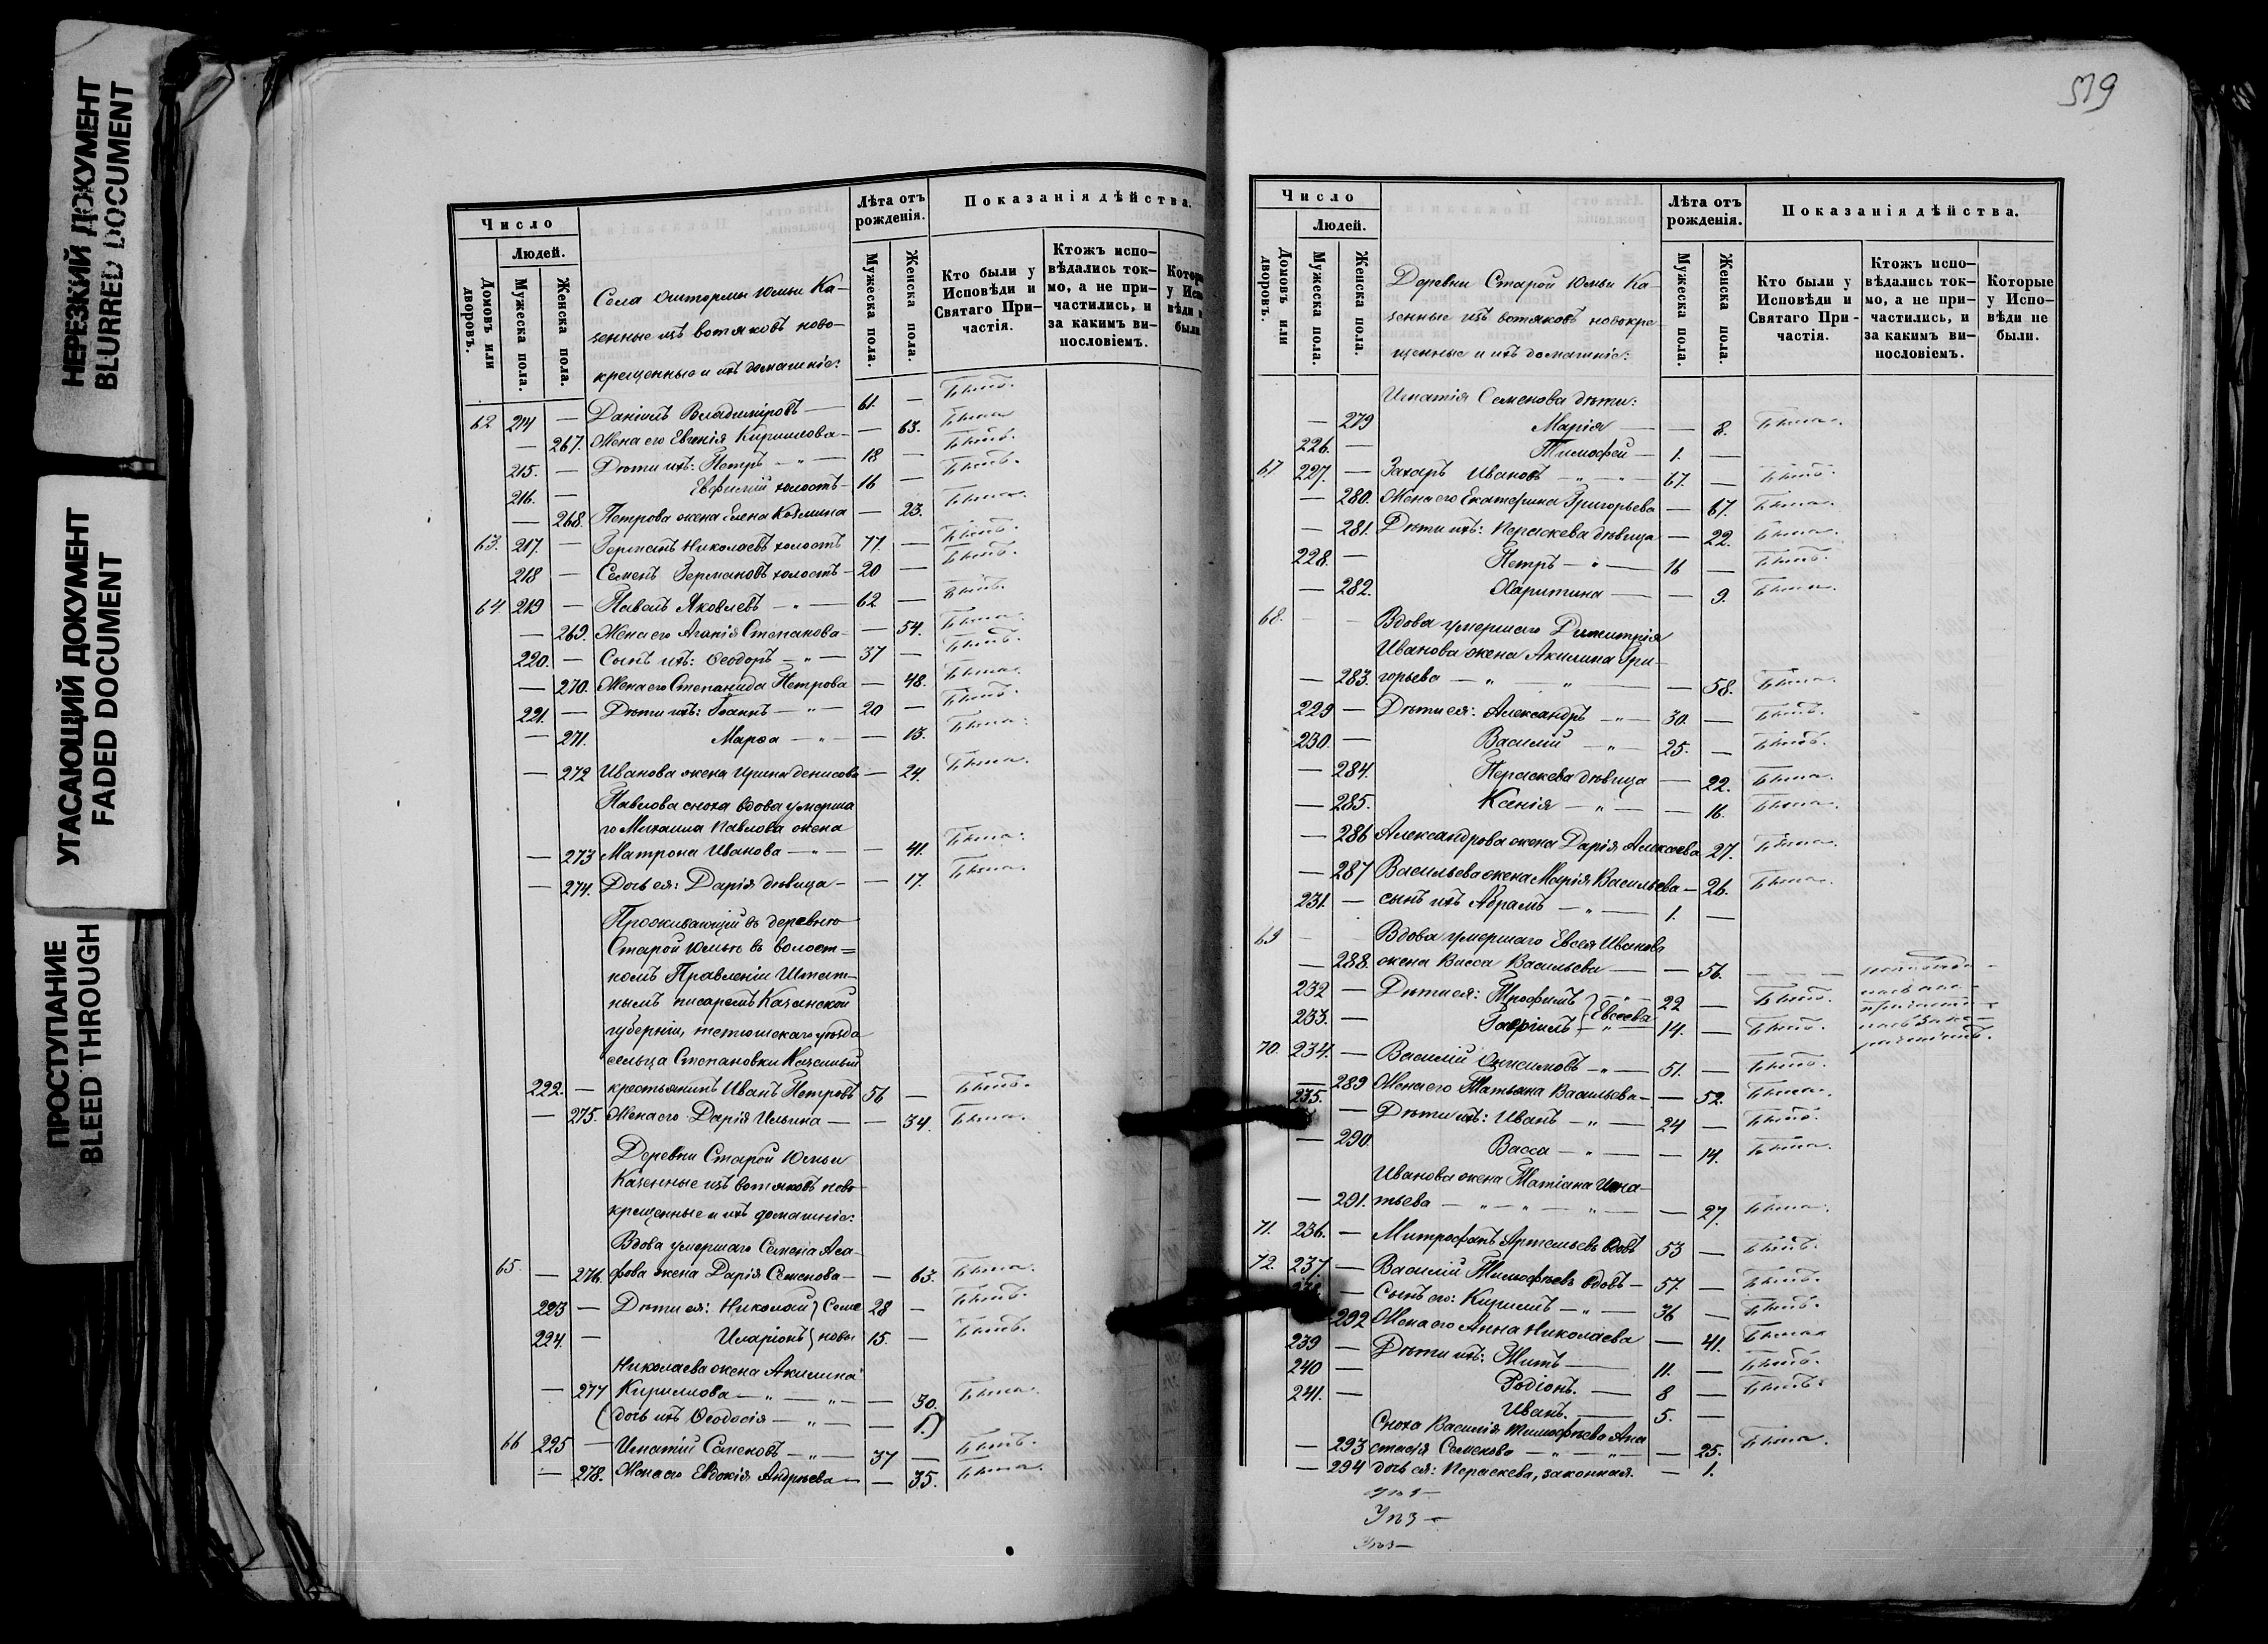 НЕРЕЗКИЙ ДОКУМЕНТ
BLURRED DOCUMENT
УГАСАЮЩИЙ ДОКУМЕНТ
FADED DOCUMENT
ПРОСТУПАНИЕ
BLEED THROUGH
Число
Людей.
Домовъ или дворовъ.
Мужеска пола.
Женска пола.
Села Ошторма Юмьи Ка-
зенные изъ вотяковъ ново-
крещенные и ихъ домашніе:
Лѣта отъ рожденія.
Мужеска пола.
Женска пола.
Показанія дѣйства.
Кто были у Исповѣди и Святаго При-частія.
Ктожъ испо-вѣдались ток-мо, а не при-частились, и за какимъ ви-нословіемъ.
62 214 — Даніилъ Владиміровъ — 61. — Былъ.
— 267. Жена его Евгенія Кириллова — — 63. Была
215. — Дѣти ихъ: Петръ — „ — 18 — Былъ.
216. — Евфимій холостъ — 16 — Былъ.
— 268. Петрова жена Елена Козмина — 23. Была.
63. 217. — Германъ Николаевъ холостъ 77. — Былъ.
218 — Семенъ Германовъ холостъ — 20 — Былъ.
64 219 — Павелъ Яковлевъ — „ — 62 — Былъ.
— 269. Жена его Агапія Степанова — — 54. Была.
220. — Сынъ ихъ: Ѳеодоръ — „ — 37 — Былъ.
— 270. Жена его Степанида Петрова — 48. Была.
221. — Дѣти ихъ: Іоаннъ — „ — 20 — Былъ.
— 271. Марѳа — „ — — 13. Была.
— 272 Иванова жена Ирина Денисова — 24. Была.
Павлова сноха вдова умерша
го Михаила Павлова жена
— 273 Матрона Иванова — „ — — 41. Была.
— 274. Дочь ея: Дарія дѣвица — — 17. Была.
Проживающій въ деревнѣ
Старой Юмьѣ въ волост=
номъ Правленіи Штат-
нымъ писаремъ Казанской
губерніи, тетюшскаго уѣзда
сельца Степановки Казенный
222. — крестьянинъ Иванъ Петровъ 56 — Былъ.
— 275. Жена его Дарія Ильина — — 34. Была.
Деревни Старой Юмьи
Казенные изъ вотяковъ ново-
крещенные и ихъ домашніе:
Вдова умершаго Семена Ага-
65. — 276. фова жена Дарія Семенова — — 63. Была.
223 — Дѣти ея: Николай } Семе 28 — Былъ.
224. — Иларіонъ } новы 15. — Былъ.
Николаева жена Акилина
— 277 Кириллова — „ — „ — — 30. Была.
(дочь ихъ Ѳеодосія — „ — — 1.)
66 225 — Игнатій Семеновъ — „ — 37 — Былъ.
— 278. Жена его Евдокія Андреева — — 35. Была.
519
Число
Людей.
Домовъ или дворовъ.
Мужеска пола.
Женска пола.
Деревни Старой Юмьи Ка-
зенные изъ вотяковъ новокре-
щенные и ихъ домашніе:
Лѣта отъ рожденія.
Мужеска пола.
Женска пола.
Показанія дѣйства.
Кто были у Исповѣди и Святаго При-частія.
Ктожъ испо-вѣдались ток-мо, а не при-частились, и за какимъ ви-нословіемъ.
Которые у Испо-вѣди не были.
Игнатія Семенова дѣти:
— 279 Марія — — 8. Была.
226. — Тимофей — 1. —
67 227. — Захаръ Ивановъ — „ — 67. — Былъ.
— 280. Жена его Екатерина Григорьева — 67. Была.
— 281. Дѣти ихъ: Параскева дѣвица — 22. Была.
228. — Петръ — „ — 16 — Былъ.
— 282. Харитина — — 9. Была.
68. — Вдова умершаго Димитрія
Иванова жена Акилина Гри-
— 283. горьева — „ — „ — — 58. Была.
229 — Дѣти ея: Александръ — „ — 30. — Былъ.
230. — Василій — „ — 25. — Былъ.
— 284. Параскева дѣвица — 22. Была.
— 285. Ксенія — „ — — 16. Была.
— 286 Александрова жена Дарія Алексеева 27. Была.
— 287 Васильева жена Марія Васильева — 26. Была.
231. — сынъ ихъ Абрамъ — „ — 1. —
69 — Вдова умершаго Евсея Иванова
— 288. жена Васса Васильева — — 56. — — —
232 — Дѣти ея: Трофимъ } — „ — 22 — Былъ.
233. — Гавріилъ } Евсеева — 14. — Былъ.
70. 234. — Василій Онисимовъ — „ — 51. — Былъ.
— 289 Жена его Татьяна Васильева — — 52. Была.
235. — Дѣти ихъ: Иванъ — „ — 24 — Былъ.
— 290. Васса — „ — — 14. Была.
Иванова жена Татіана Игна-
— 291. тьева — „ — „ — „ — — 27. Была.
71. 236. — Митрофанъ Артемьевъ вдовъ 53 — Былъ.
72. 237. — Василій Тимофѣевъ вдовъ — 57. — Былъ.
238. — Сынъ его: Кириллъ — „ — 36 — Былъ.
292 Жена его Анна Николаева — 41. Была
239 — Дѣти ихъ: Титъ — 11. — Былъ.
240 — Родіонъ. — 8 — Былъ.
241. — Иванъ. — 5. —
Сноха Василія Тимофѣева Ана
— 293 стасія Семенова — „ — „ — — 25. Была.
— 294 дочь ея: Параскева, законная. — 1.